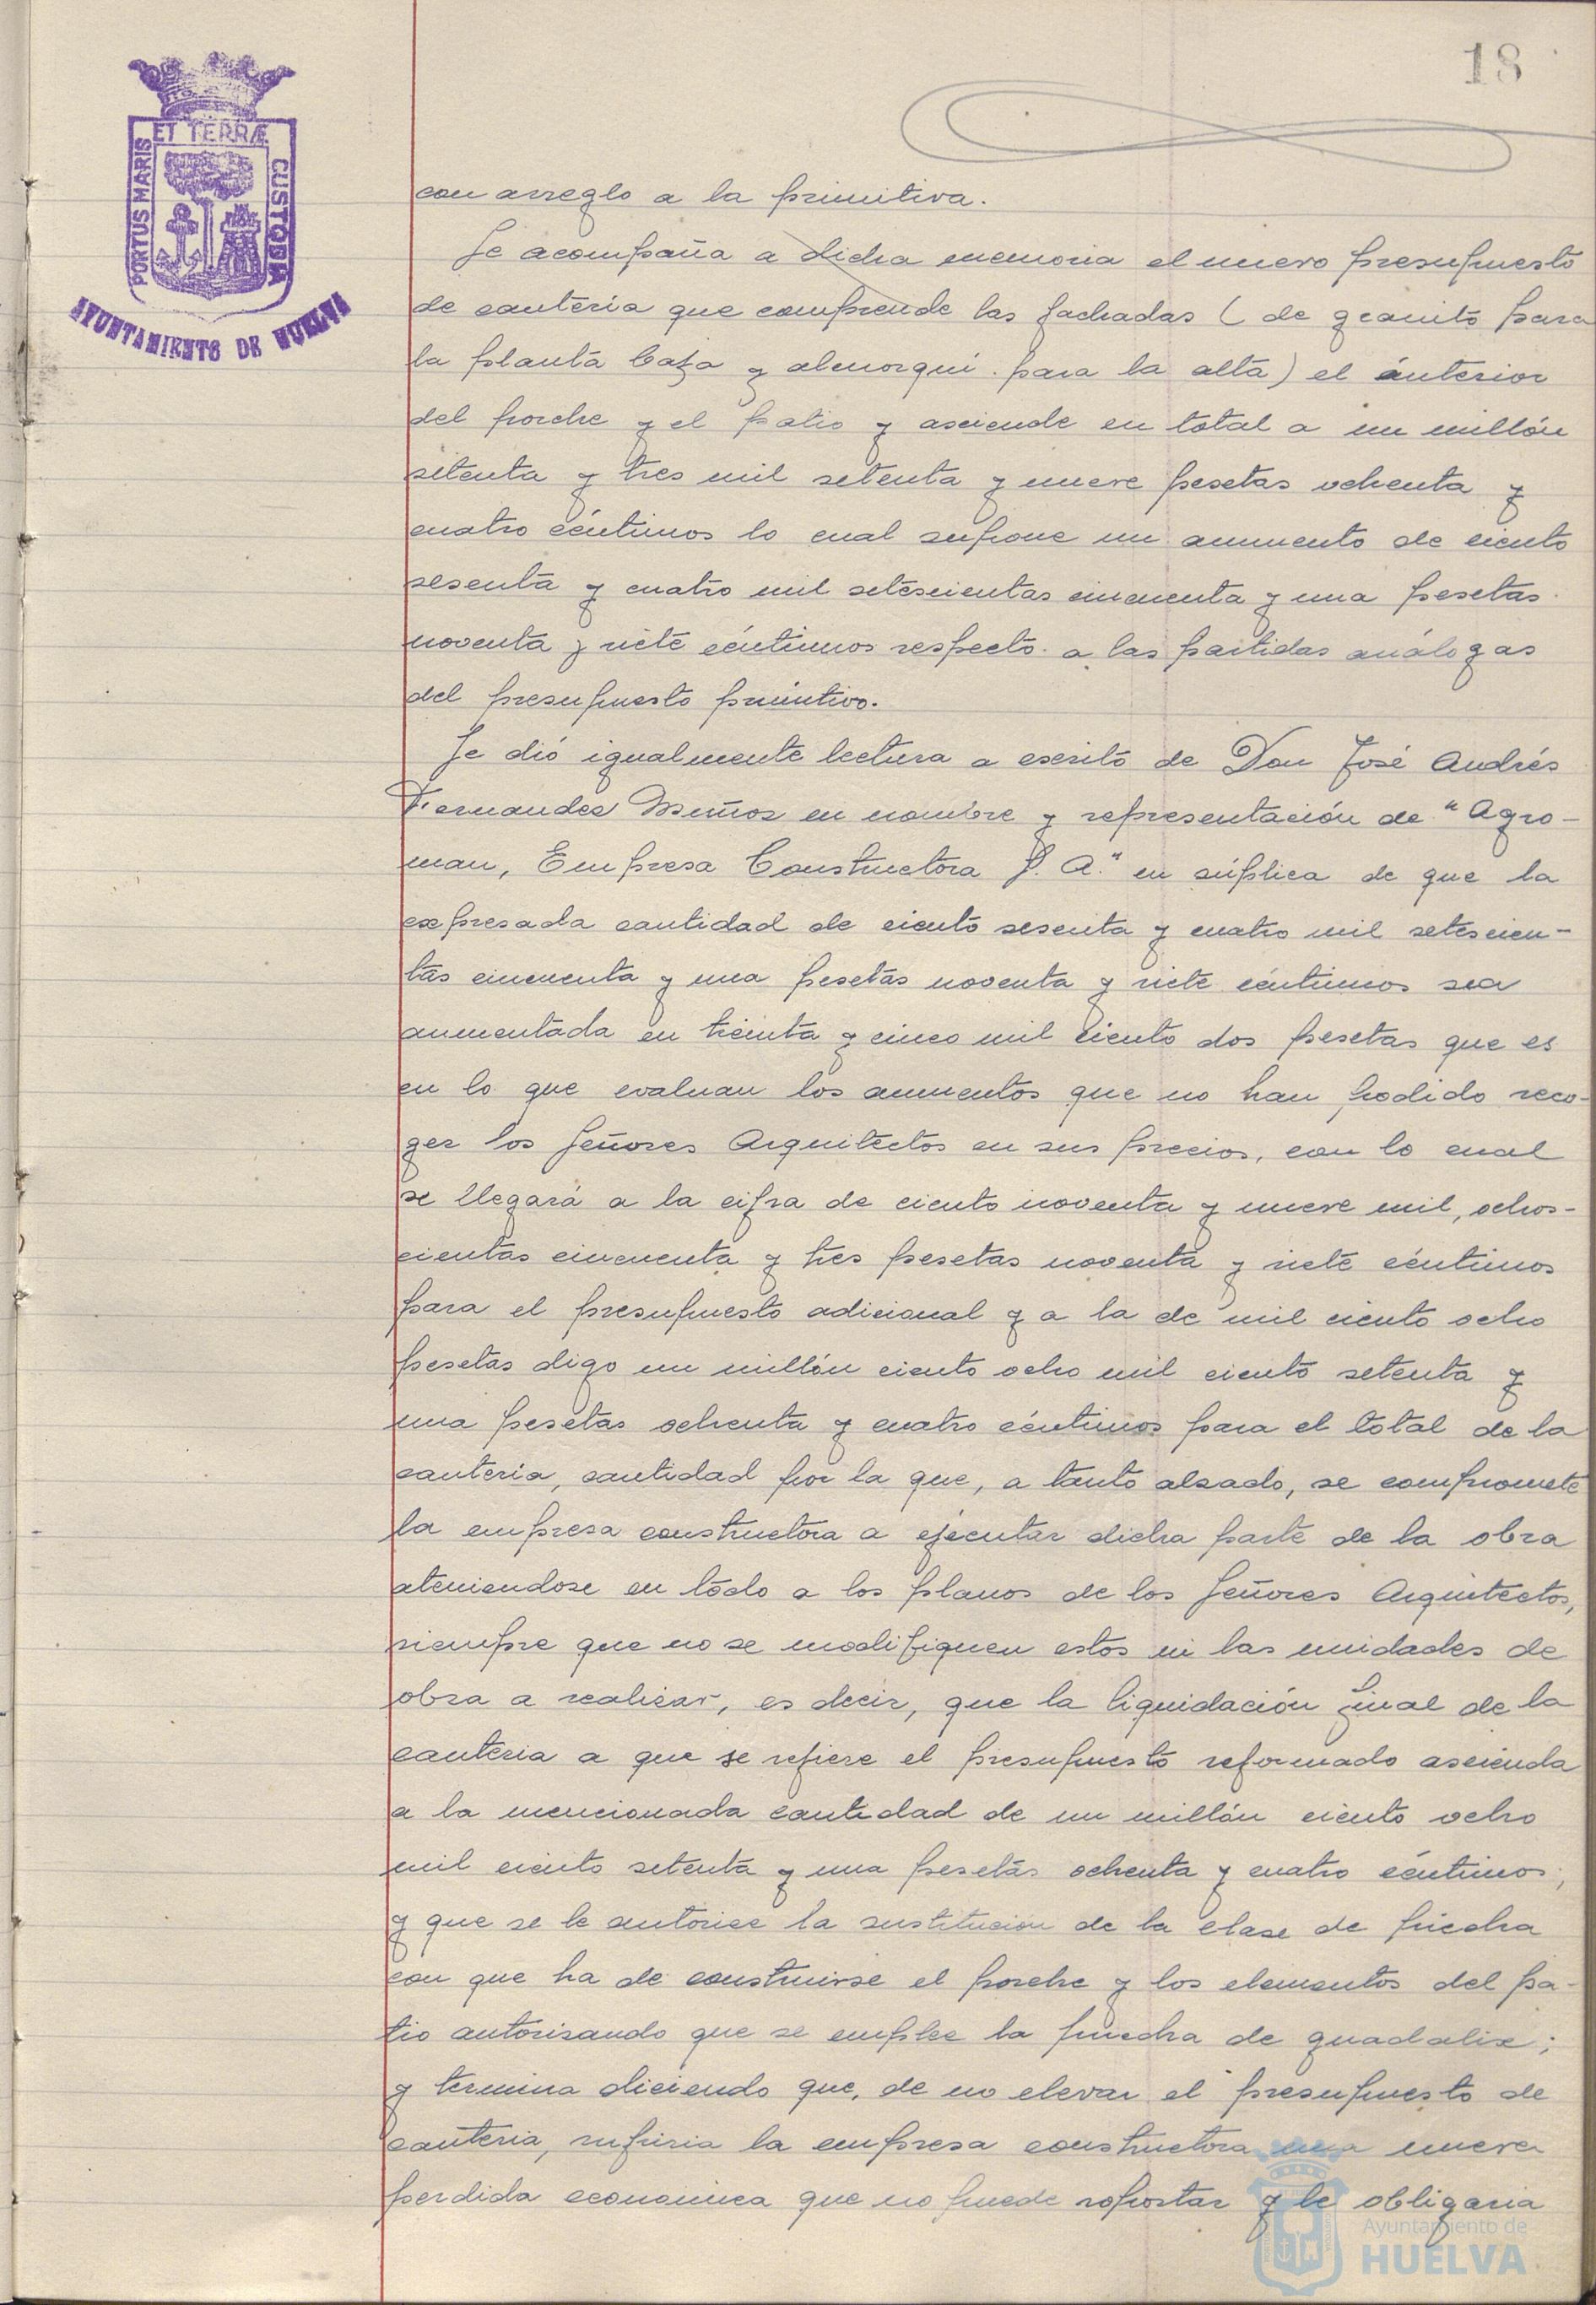 18
ET TERRÆ
PORTUS MARIS
CUSTODIA
AYUNTAMIENTO DE HUELVA
con arreglo a la primitiva.
Se acompaña a dicha memoria el nuevo presupuesto
de cantería que comprende las fachadas (de granito para
la planta baja y almorquí para la alta) el ánterior
del porche y el patio y asciende en total a un millón
setenta y tres mil setenta y nueve pesetas ochenta y
cuatro céntimos lo cual supone un aumento de ciento
sesenta y cuatro mil setescientas cincuenta y una pesetas
noventa y siete céntimos respecto a las partidas análogas
del presupuesto primitivo.
Se dió igualmente lectura a escrito de Don José Andrés
Fernandez Muñoz en nombre y representación de "Agro-
man, Empresa Constructora S. A." en súplica de que la
expresada cantidad de ciento sesenta y cuatro mil setescien-
tas cincuenta y una pesetas noventa y siete céntimos sea
aumentada en treinta y cinco mil ciento dos pesetas que es
en lo que evaluan los aumentos que no han podido reco-
ger los Señores Arquitectos en sus precios, con lo cual
se llegará a la cifra de ciento noventa y nueve mil, ochos-
cientas cincuenta y tres pesetas noventa y siete céntimos
para el presupuesto adicional y a la de mil ciento ocho
pesetas digo un millón ciento ocho mil ciento setenta y
una pesetas ochenta y cuatro céntimos para el total de la
canteria, cantidad por la que, a tanto alzado, se compromete
la empresa constructora a ejecutar dicha parte de la obra
ateniendose en todo a los planos de los Señores Arquitectos,
siempre que no se modifiquen estos ni las unidades de
obra a realizar, es decir, que la liquidación final de la
canteria a que se refiere el presupuesto reformado ascienda
a la mencionada cantidad de un millón ciento ocho
mil ciento setenta y una pesetas ochenta y cuatro céntimos;
y que se le autorice la sustitución de la clase de piedra
con que ha de construirse el porche y los elementos del pa-
tio autorizando que se emplee la piedra de guadalix;
y termina diciendo que, de no elevar el presupuesto de
canteria, sufriria la empresa constructora una nueva
perdida economica que no puede soportar y le obligaria
Ayuntamiento de
HUELVA